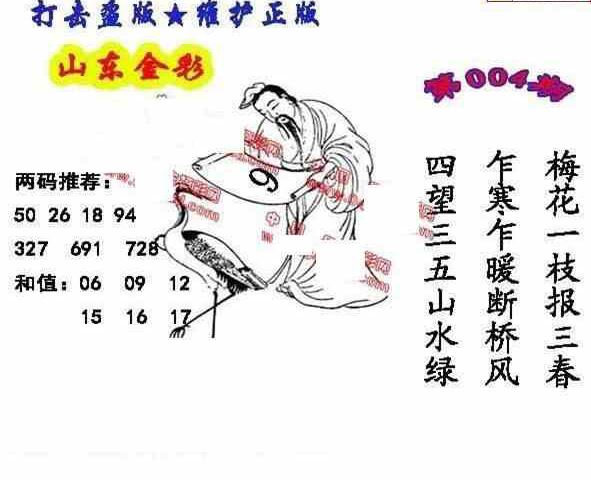 打击盗版★维护正版
山东金彩
第004期
两码推荐：
50 26 18 94
327 691 728
和值：06 09 12
15 16 17
9
梅花一枝报三春
乍寒乍暖断桥风
四望三五山水绿